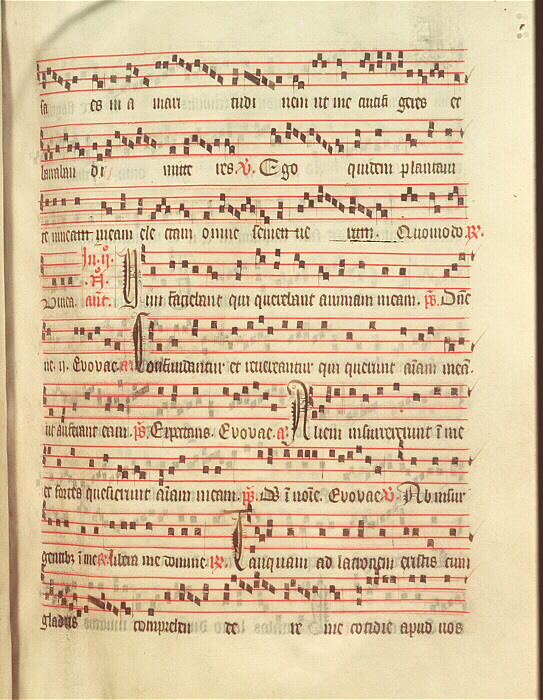 es in a mari tudi nem ut me cruci fi geres et
barraban di mitte res. V. Ego quidem plantavi
te vineam meam elec tam omne semen ve rum. Quomodo. R.
In ij. N.
Vinea. ant. Vim faciebant qui querebant animam meam. ps. Dne
ne. ij. Evovae. a. Confundantur et revereantur qui querunt aiam meā
ut auferant eam. ps. Expectans. Evovae. a. Alieni insurrexerunt ī me
et fortes quesierunt aiam meam. ps. Ds ī noīe. Evovae. V. Ab insur
gentibz ī me. R. libera me domine. R. Tanquam ad latronem existis cum
gladiis comprehen de re me cotidie apud vos